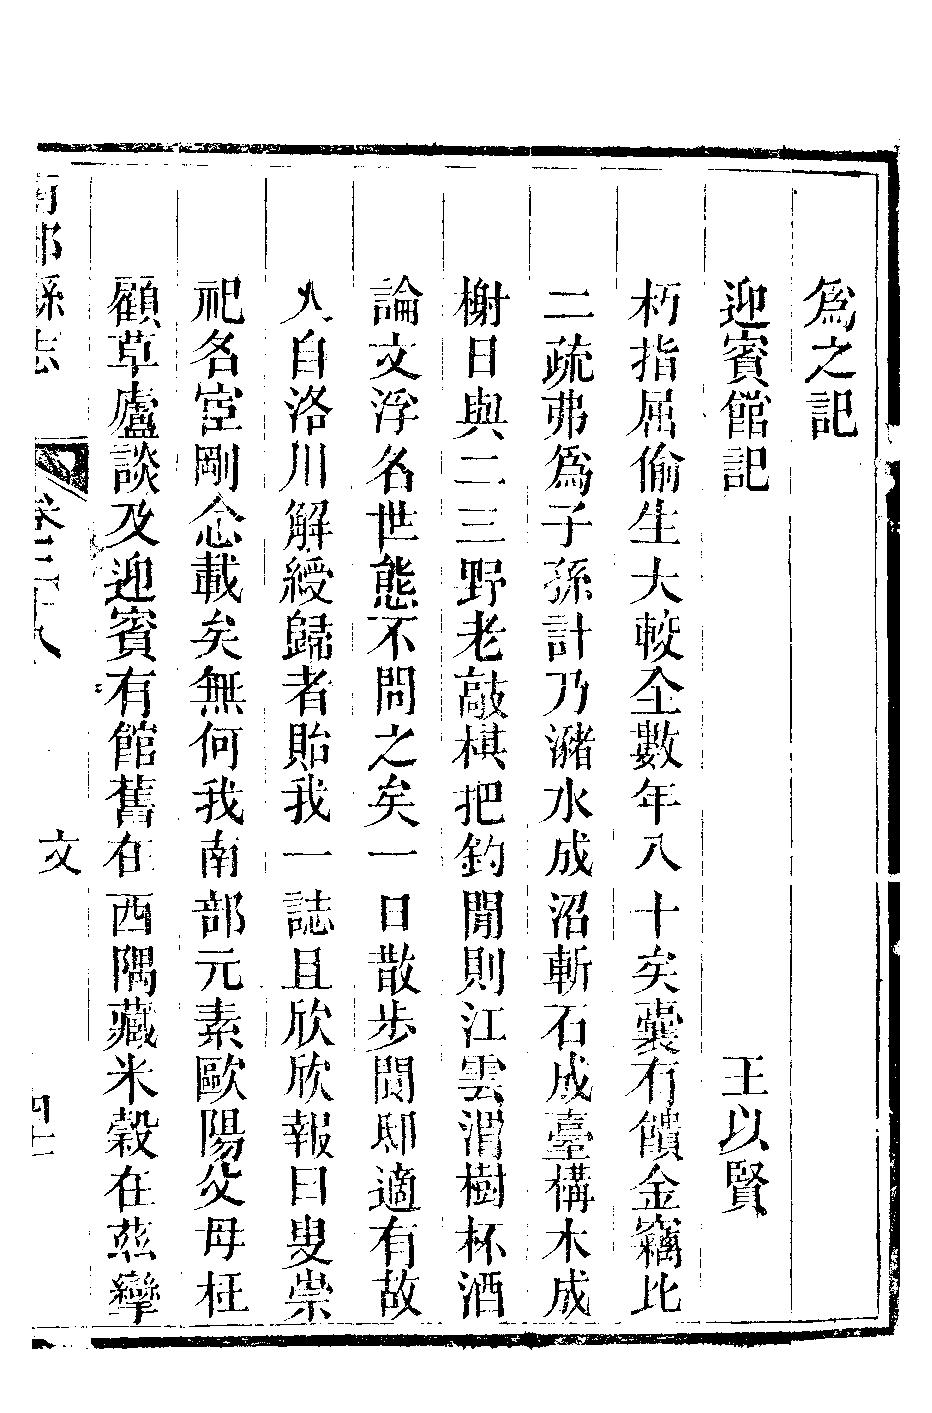 爲之記
迎賓館記　王以賢
朽指屈偷生大較全數年八十矣囊有饋金竊比
二疏弗爲子孫計乃瀦水成沼斬石成臺構木成
榭日與二三野老敲棋把釣閒則江雲渭樹杯酒
論文浮名世態不問之矣一日散步閭邸適有故
人自洛川解綬歸者貽我一誌且欣欣報曰叟崇
祀名宦剛念載矣無何我南部元素歐陽父母枉
顧草廬談及迎賓有館舊在西隅藏米穀在茲孿
南部縣志
卷二十八
文